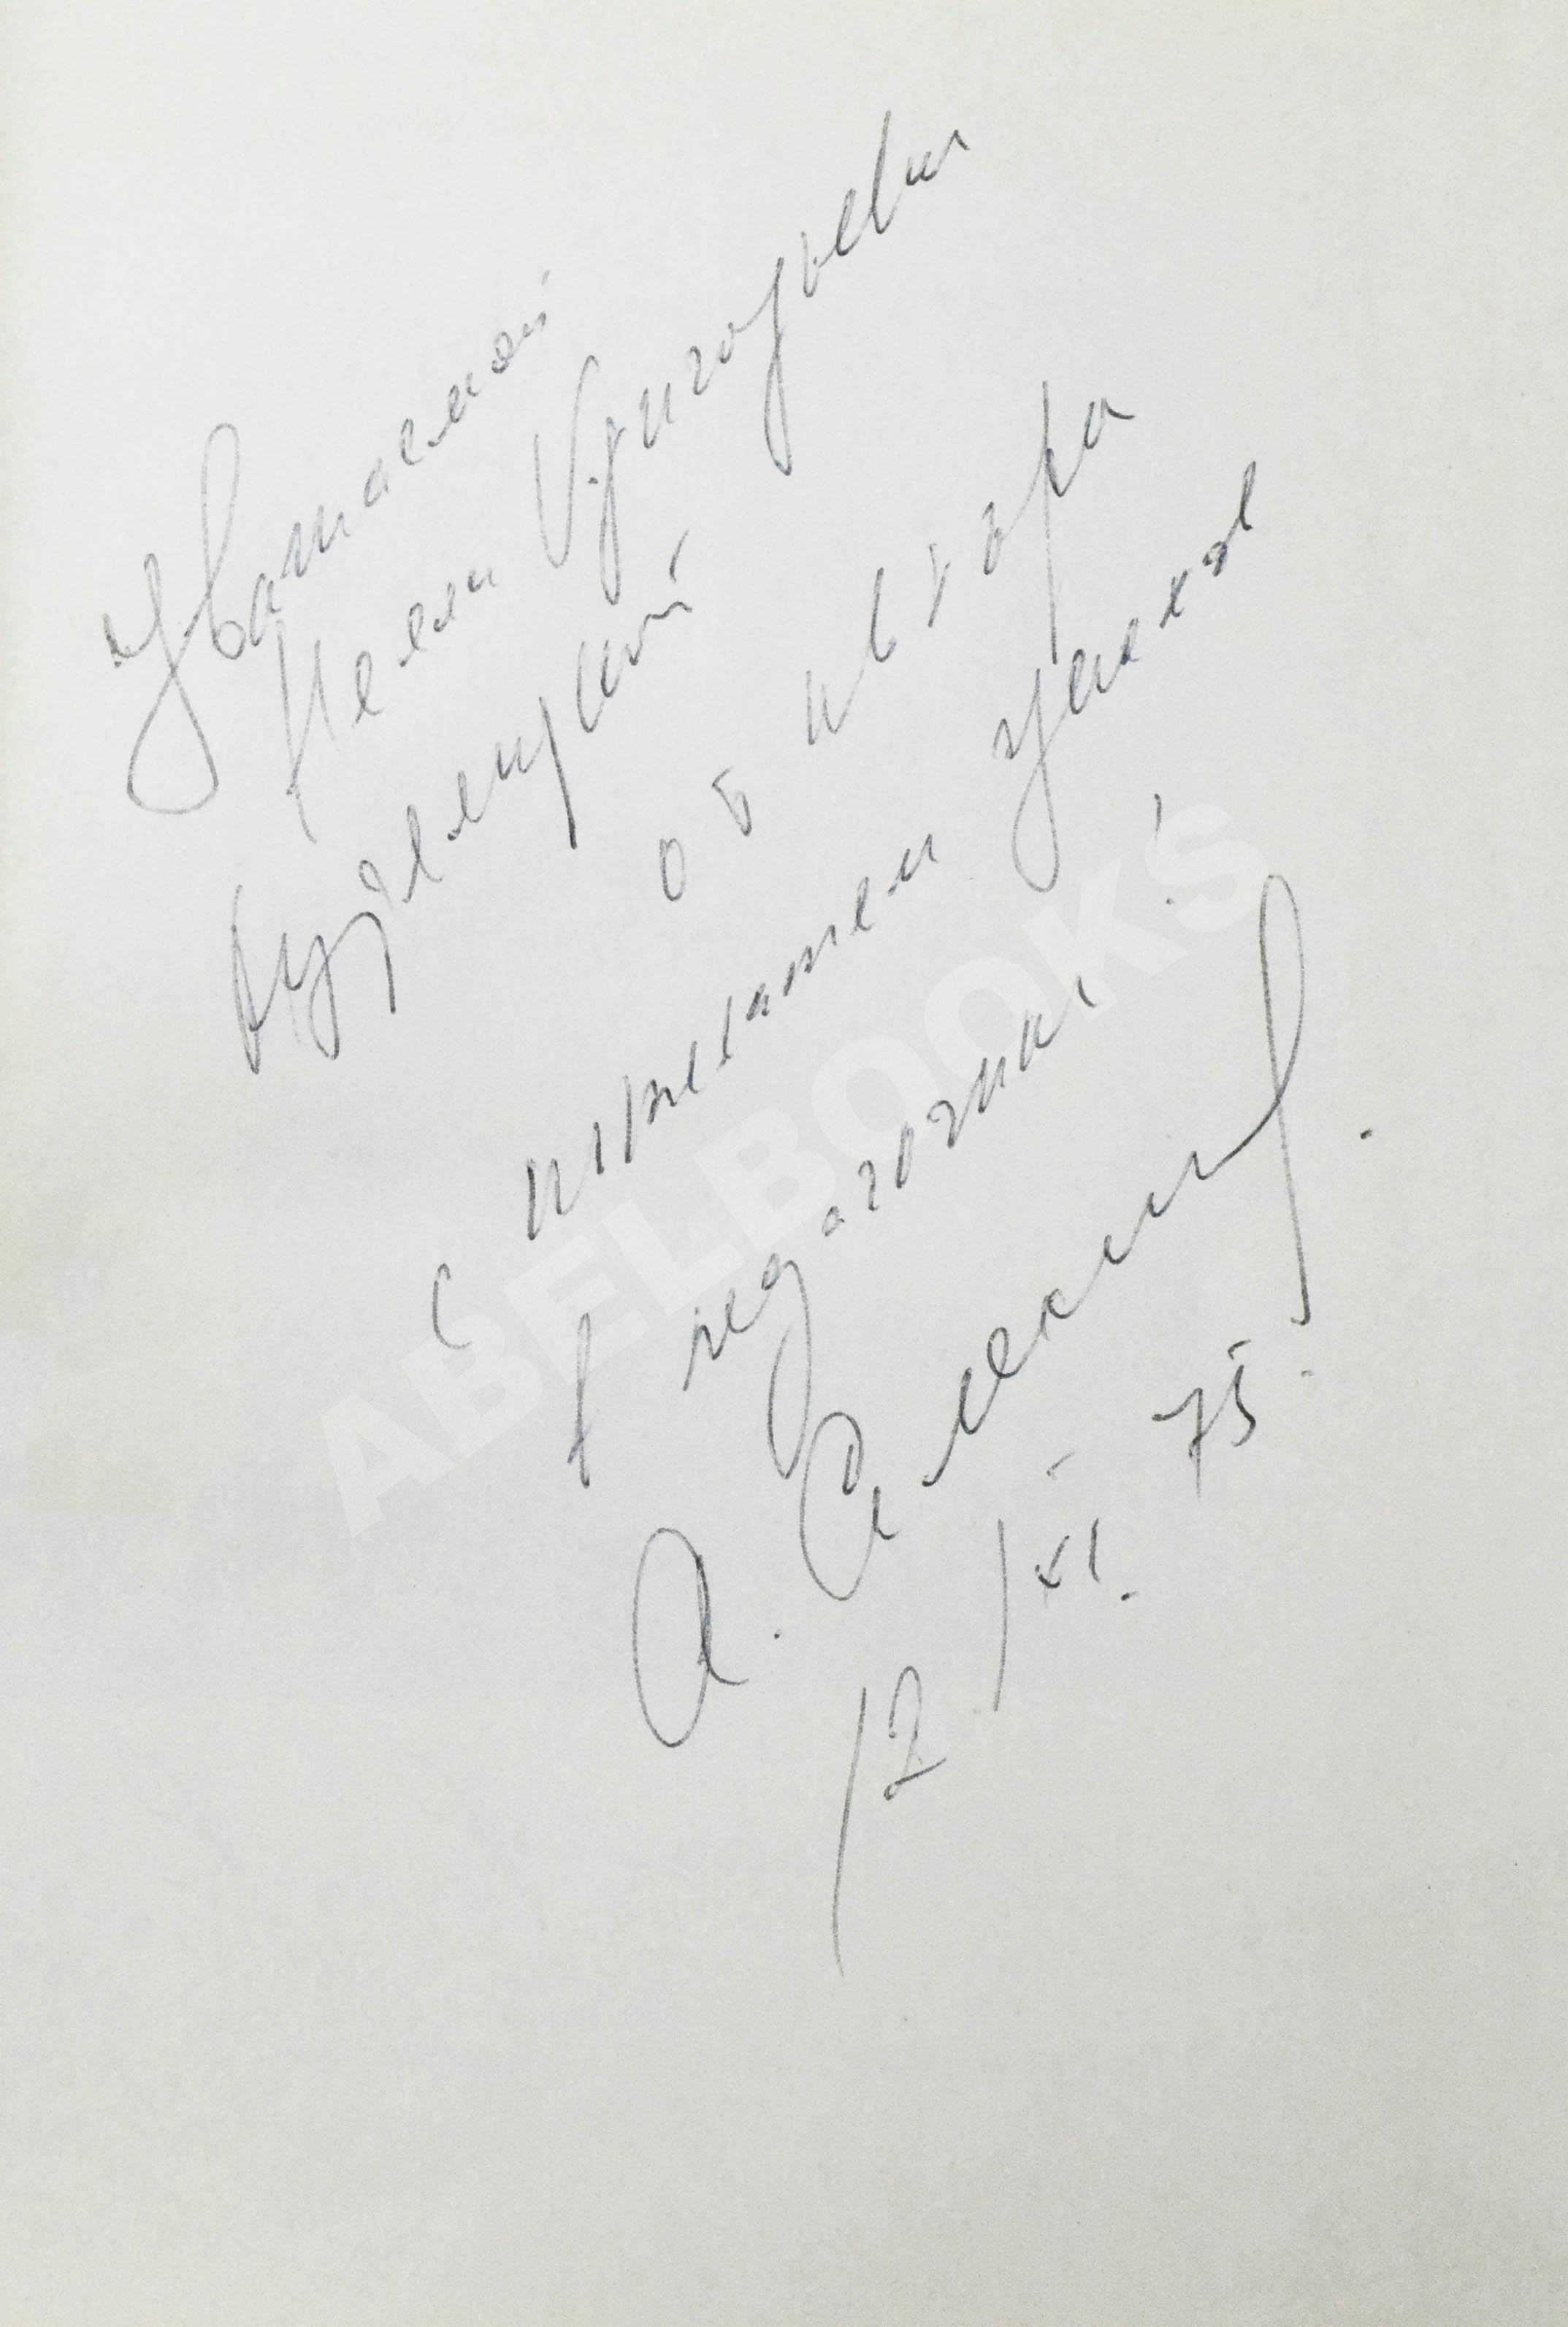 Уважаемой
Нелли Григорьевне
Кузнецкой
от автора
с пожеланием успехов
в педагогике!
А. Алексин.
12/XI. 75.
ABELBOOKS